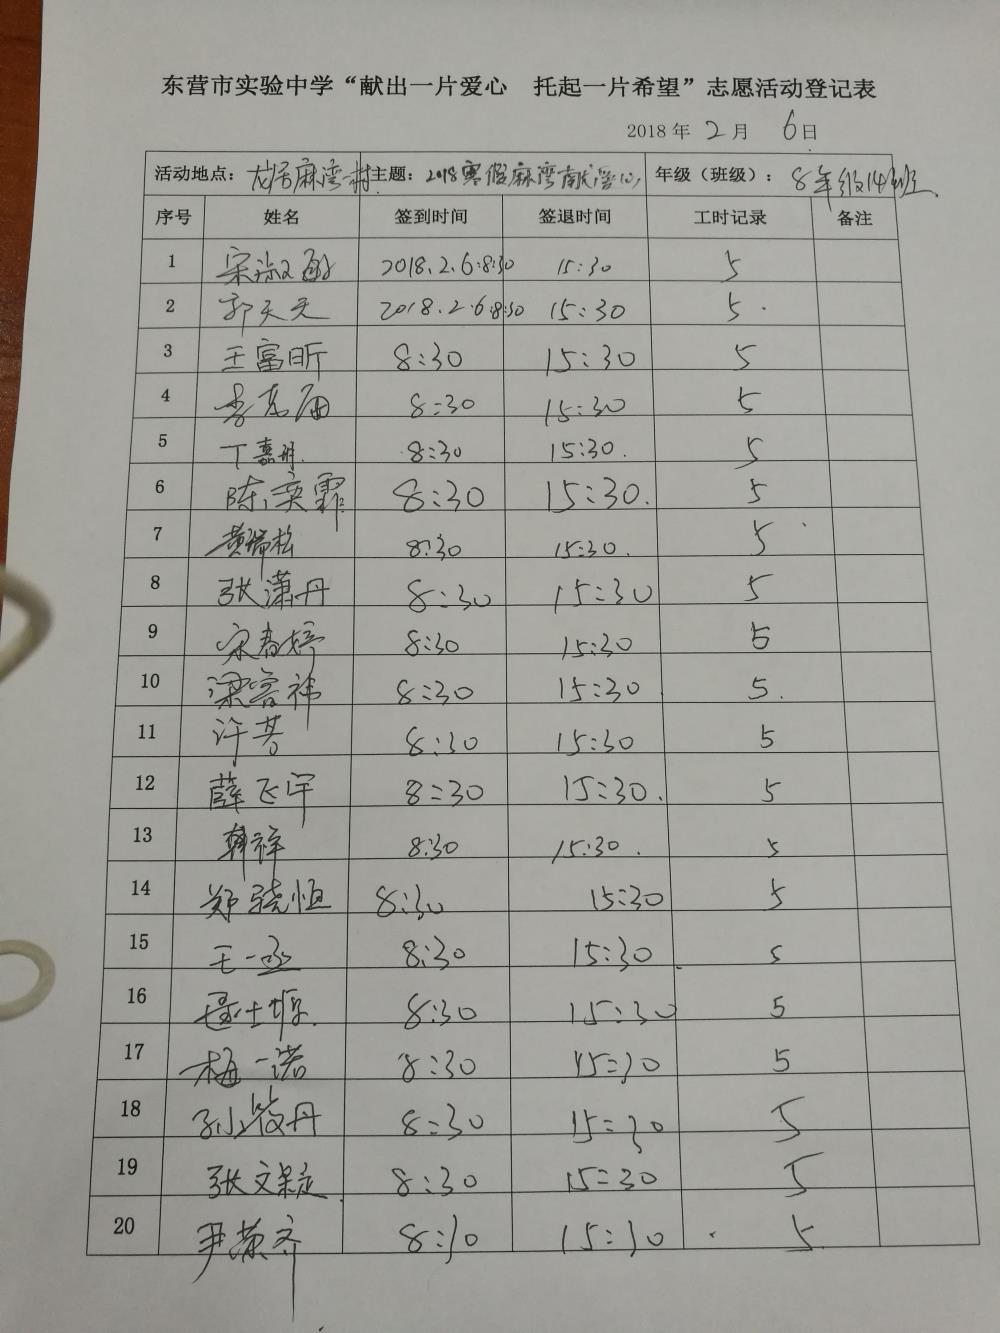 东营市实验中学“献出一片爱心 托起一片希望”志愿活动登记表
2018年2月6日
活动地点：龙居麻湾一村 主题：2018寒假麻湾 年级（班级）：8年级14班
序号 姓名 签到时间 签退时间 工时记录 备注
1 宋淑 2018.2.6.8:30 15:30 5
2 郭天天 2018.2.6.8:30 15:30 5.
3 王富昕 8:30 15:30 5
4 李 8:30 15:30 5
5 丁嘉 8:30 15:30. 5
6 陈奕霏 8:30 15:30. 5
7 黄瑞松 8:30 15:30. 5
8 张潇丹 8:30 15:30 5
9 宋春婷 8:30 15:30 5
10 梁 祎 8:30 15:30 5.
11 许 8:30 15:30 5
12 薛飞宇 8:30 15:30. 5
13 韩祥 8:30 15:30. 5
14 郑骁恒 8:30 15:30 5
15 王一丞 8:30 15:30 5
16 8:30 15:30 5
17 梅一诺 8:30 15:30 5
18 孙筱丹 8:30 15:30 5
19 张文 8:30 15:30 5
20 尹荣齐 8:30 15:30 5